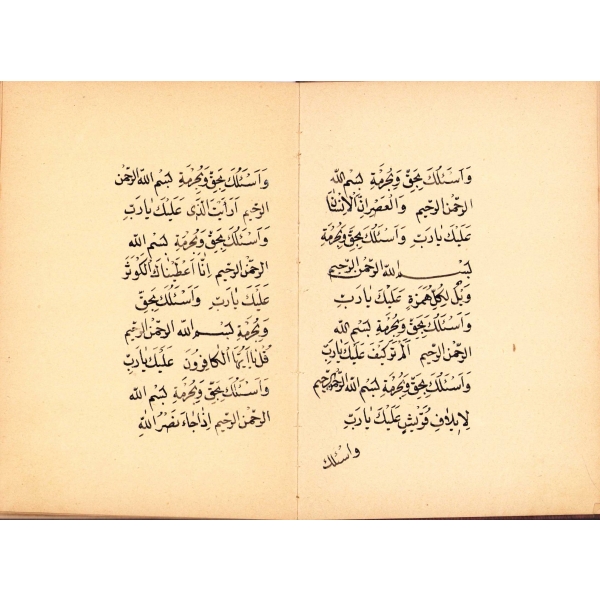 وَاَسْئَلُكَ بِحَقِّ وَبِحُرْمَةِ بِسْمِ اللّٰهِ
الرَّحْمٰنِ الرَّحِيمِ وَالْعَصْرِ اِنَّ الْاِنْسَانَ
عَلَيْكَ يَارَبِّ وَاَسْئَلُكَ بِحَقِّ وَبِحُرْمَةِ
بِسْمِ اللّٰهِ الرَّحْمٰنِ الرَّحِيمِ
وَيْلٌ لِكُلِّ هُمَزَةٍ عَلَيْكَ يَارَبِّ
وَاَسْئَلُكَ بِحَقِّ وَبِحُرْمَةِ بِسْمِ اللّٰهِ
الرَّحْمٰنِ الرَّحِيمِ اَلَمْ تَرَ كَيْفَ عَلَيْكَ يَارَبِّ
وَاَسْئَلُكَ بِحَقِّ وَبِحُرْمَةِ بِسْمِ اللّٰهِ الرَّحْمٰنِ الرَّحِيمِ
لِاِيلَافِ قُرَيْشٍ عَلَيْكَ يَارَبِّ
وَاَسْئَلُكَ
وَاَسْئَلُكَ بِحَقِّ وَبِحُرْمَةِ بِسْمِ اللّٰهِ الرَّحْمٰنِ
الرَّحِيمِ اَرَاَيْتَ الَّذِى عَلَيْكَ يَارَبِّ
وَاَسْئَلُكَ بِحَقِّ وَبِحُرْمَةِ بِسْمِ اللّٰهِ
الرَّحْمٰنِ الرَّحِيمِ اِنَّا اَعْطَيْنَاكَ الْكَوْثَرَ
عَلَيْكَ يَارَبِّ وَاَسْئَلُكَ بِحَقِّ
وَبِحُرْمَةِ بِسْمِ اللّٰهِ الرَّحْمٰنِ الرَّحِيمِ
قُلْ يَااَيُّهَا الْكَافِرُونَ عَلَيْكَ يَارَبِّ
وَاَسْئَلُكَ بِحَقِّ وَبِحُرْمَةِ بِسْمِ اللّٰهِ
الرَّحْمٰنِ الرَّحِيمِ اِذَا جَاءَ نَصْرُ اللّٰهِ